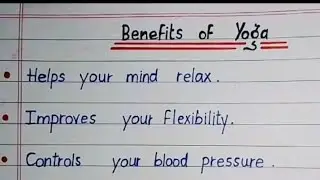 Benefits of Yoga
• Helps your mind relax.
• Improves your Flexibility.
• Controls your blood pressure.